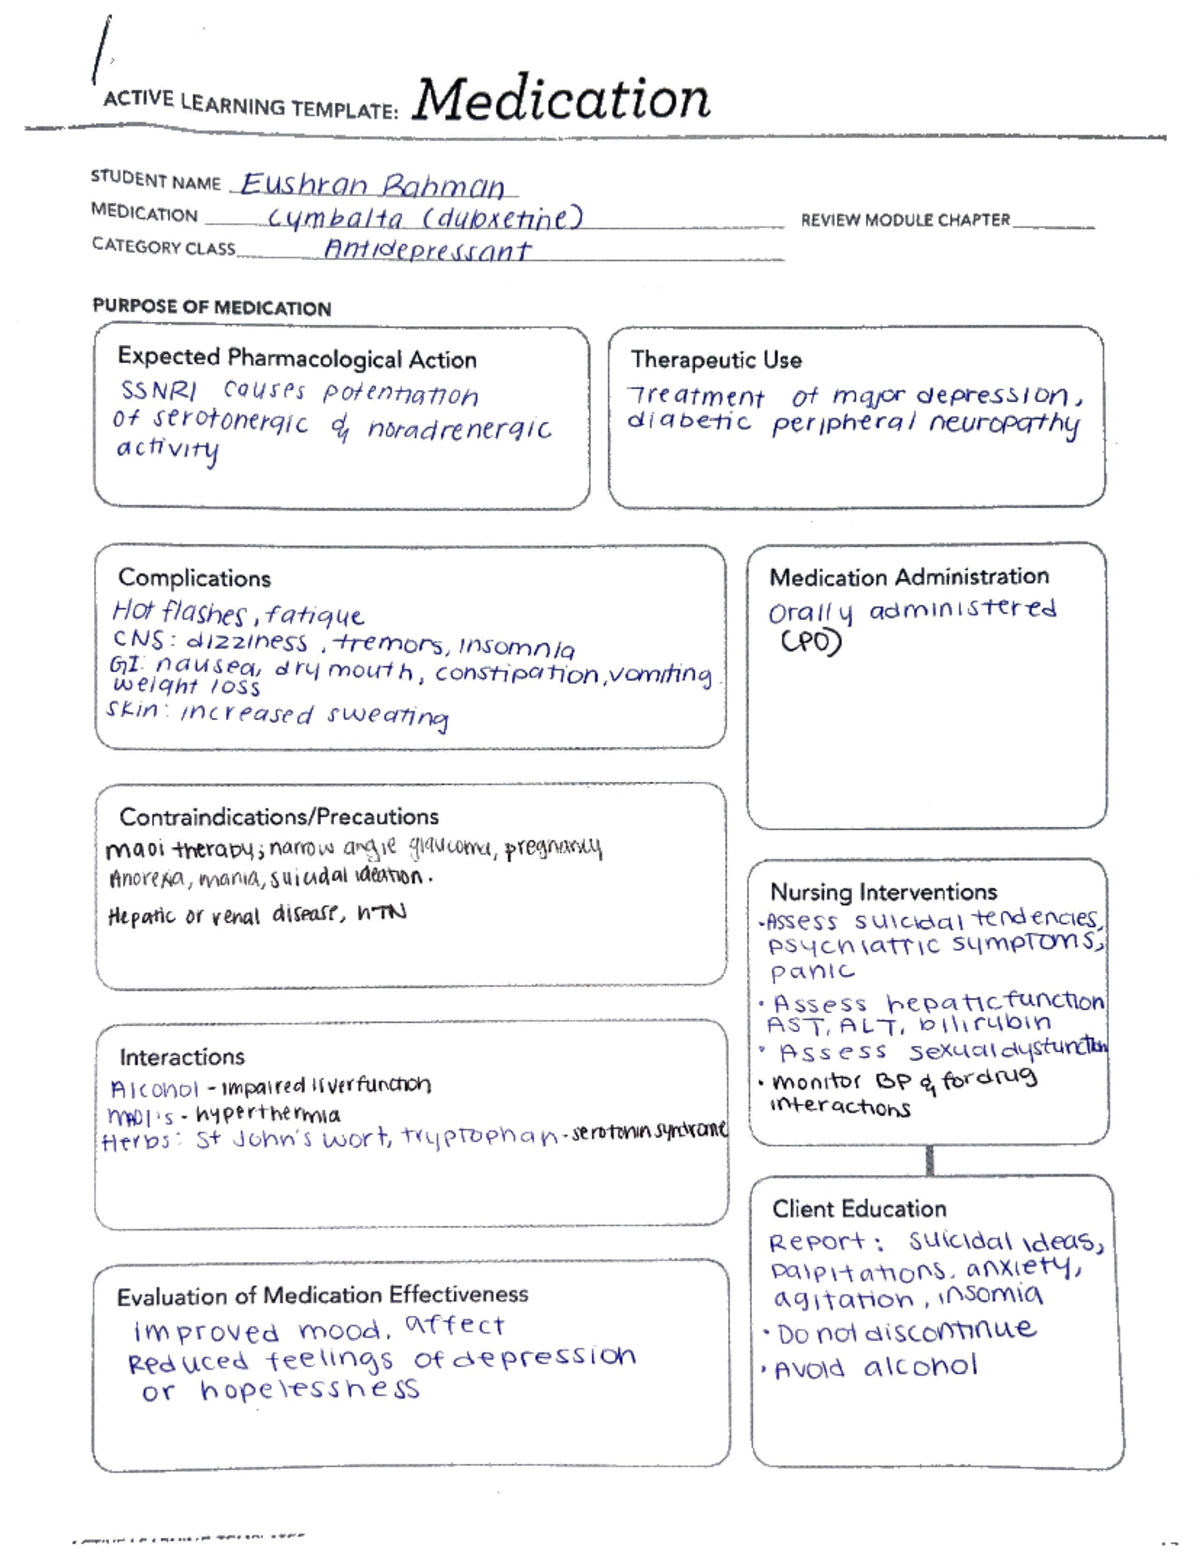 ACTIVE LEARNING TEMPLATE: Medication
STUDENT NAME Eushran Rahman
MEDICATION Cymbalta (duloxetine)
REVIEW MODULE CHAPTER
CATEGORY CLASS Antidepressant
PURPOSE OF MEDICATION
Expected Pharmacological Action
SSNRI causes potentiation
of serotonergic & noradrenergic
activity
Therapeutic Use
Treatment of major depression,
diabetic peripheral neuropathy
Complications
Hot flashes, fatigue
CNS: dizziness, tremors, insomnia
GI: nausea, dry mouth, constipation, vomiting
weight loss
Skin: increased sweating
Medication Administration
Orally administered
(PO)
Contraindications/Precautions
maoi therapy; narrow angle glaucoma, pregnancy
Anorexia, mania, suicidal ideation.
Hepatic or renal disease, HTN
Nursing Interventions
-Assess suicidal tendencies,
psychiattric symptoms,
panic
• Assess hepatic function
AST, ALT, bilirubin
• Assess sexual dysfunction
• monitor BP & for drug
interactions
Interactions
Alcohol - impaired liver function
MAOI's - hyperthermia
Herbs: St John's wort, tryptophan - serotonin syndrome
Client Education
Report: suicidal ideas,
palpitations, anxiety,
agitation, insomia
• Do not discontinue
• Avoid alcohol
Evaluation of Medication Effectiveness
improved mood, affect
Reduced feelings of depression
or hopelessness